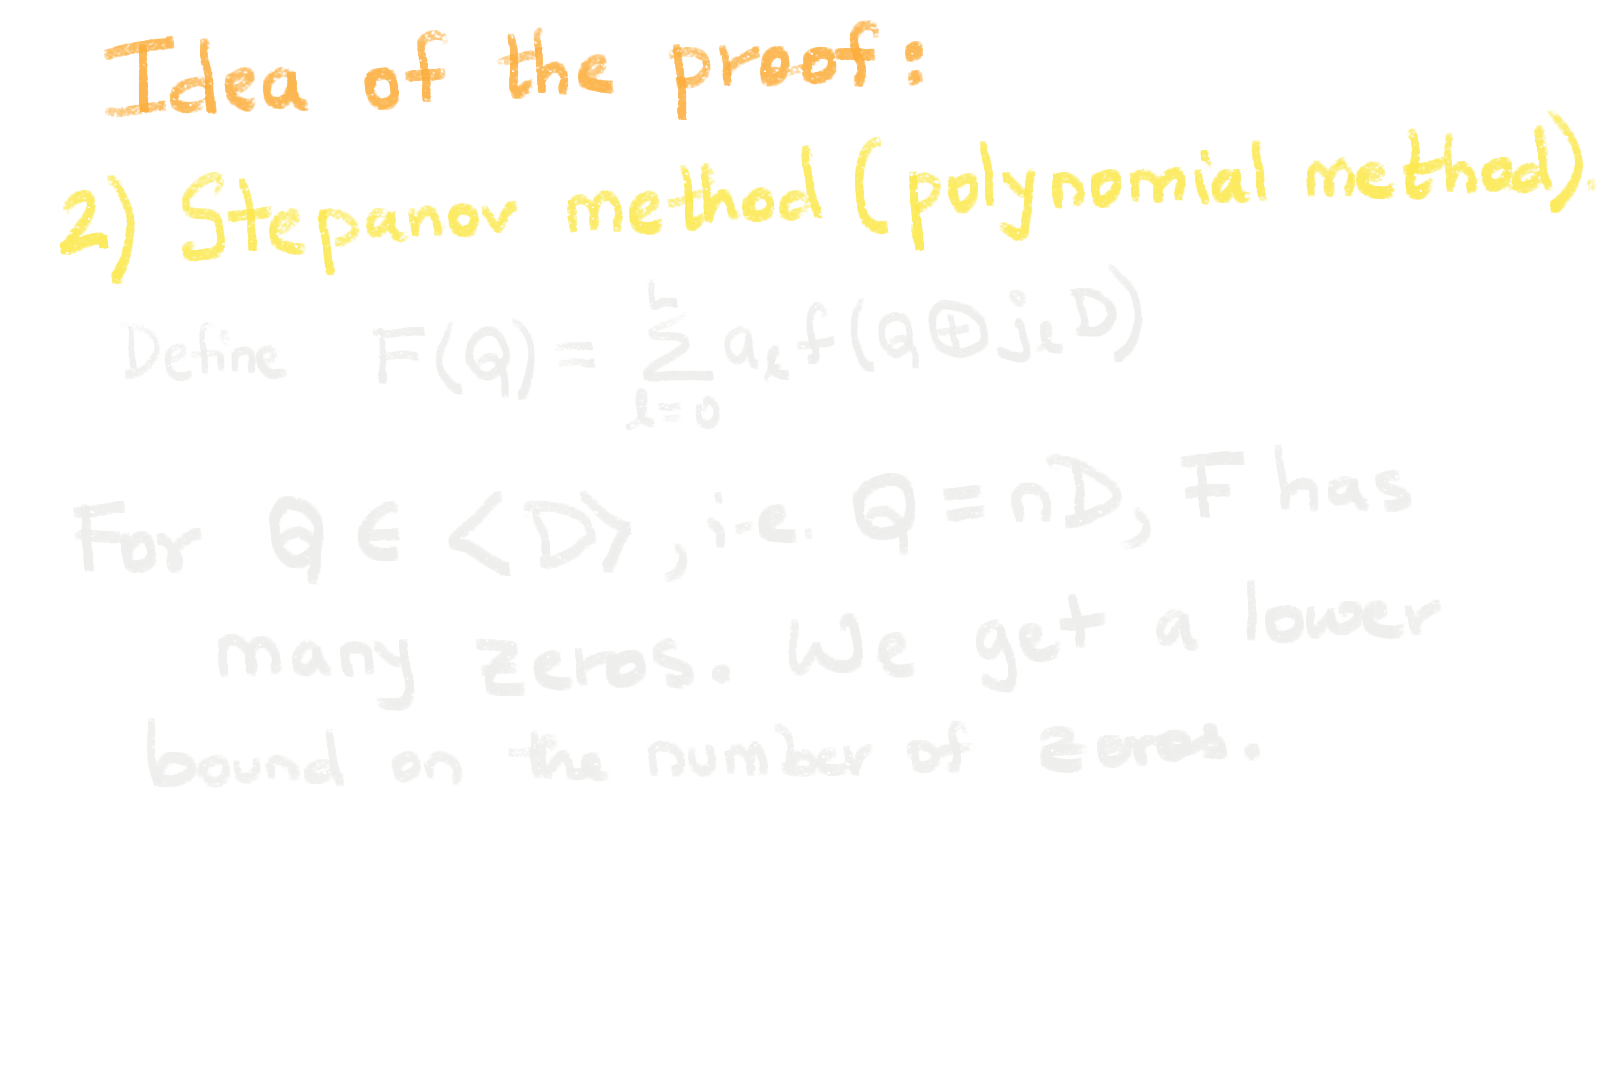 Idea of the proof:
2) Stepanov method (polynomial method).
Define F(Q) = \sum_{l=0}^{h} a_l f(Q ⊕ j_l D)
For Q ∈ <D>, i.e. Q = nD, F has
many zeros. We get a lower
bound on the number of zeros.